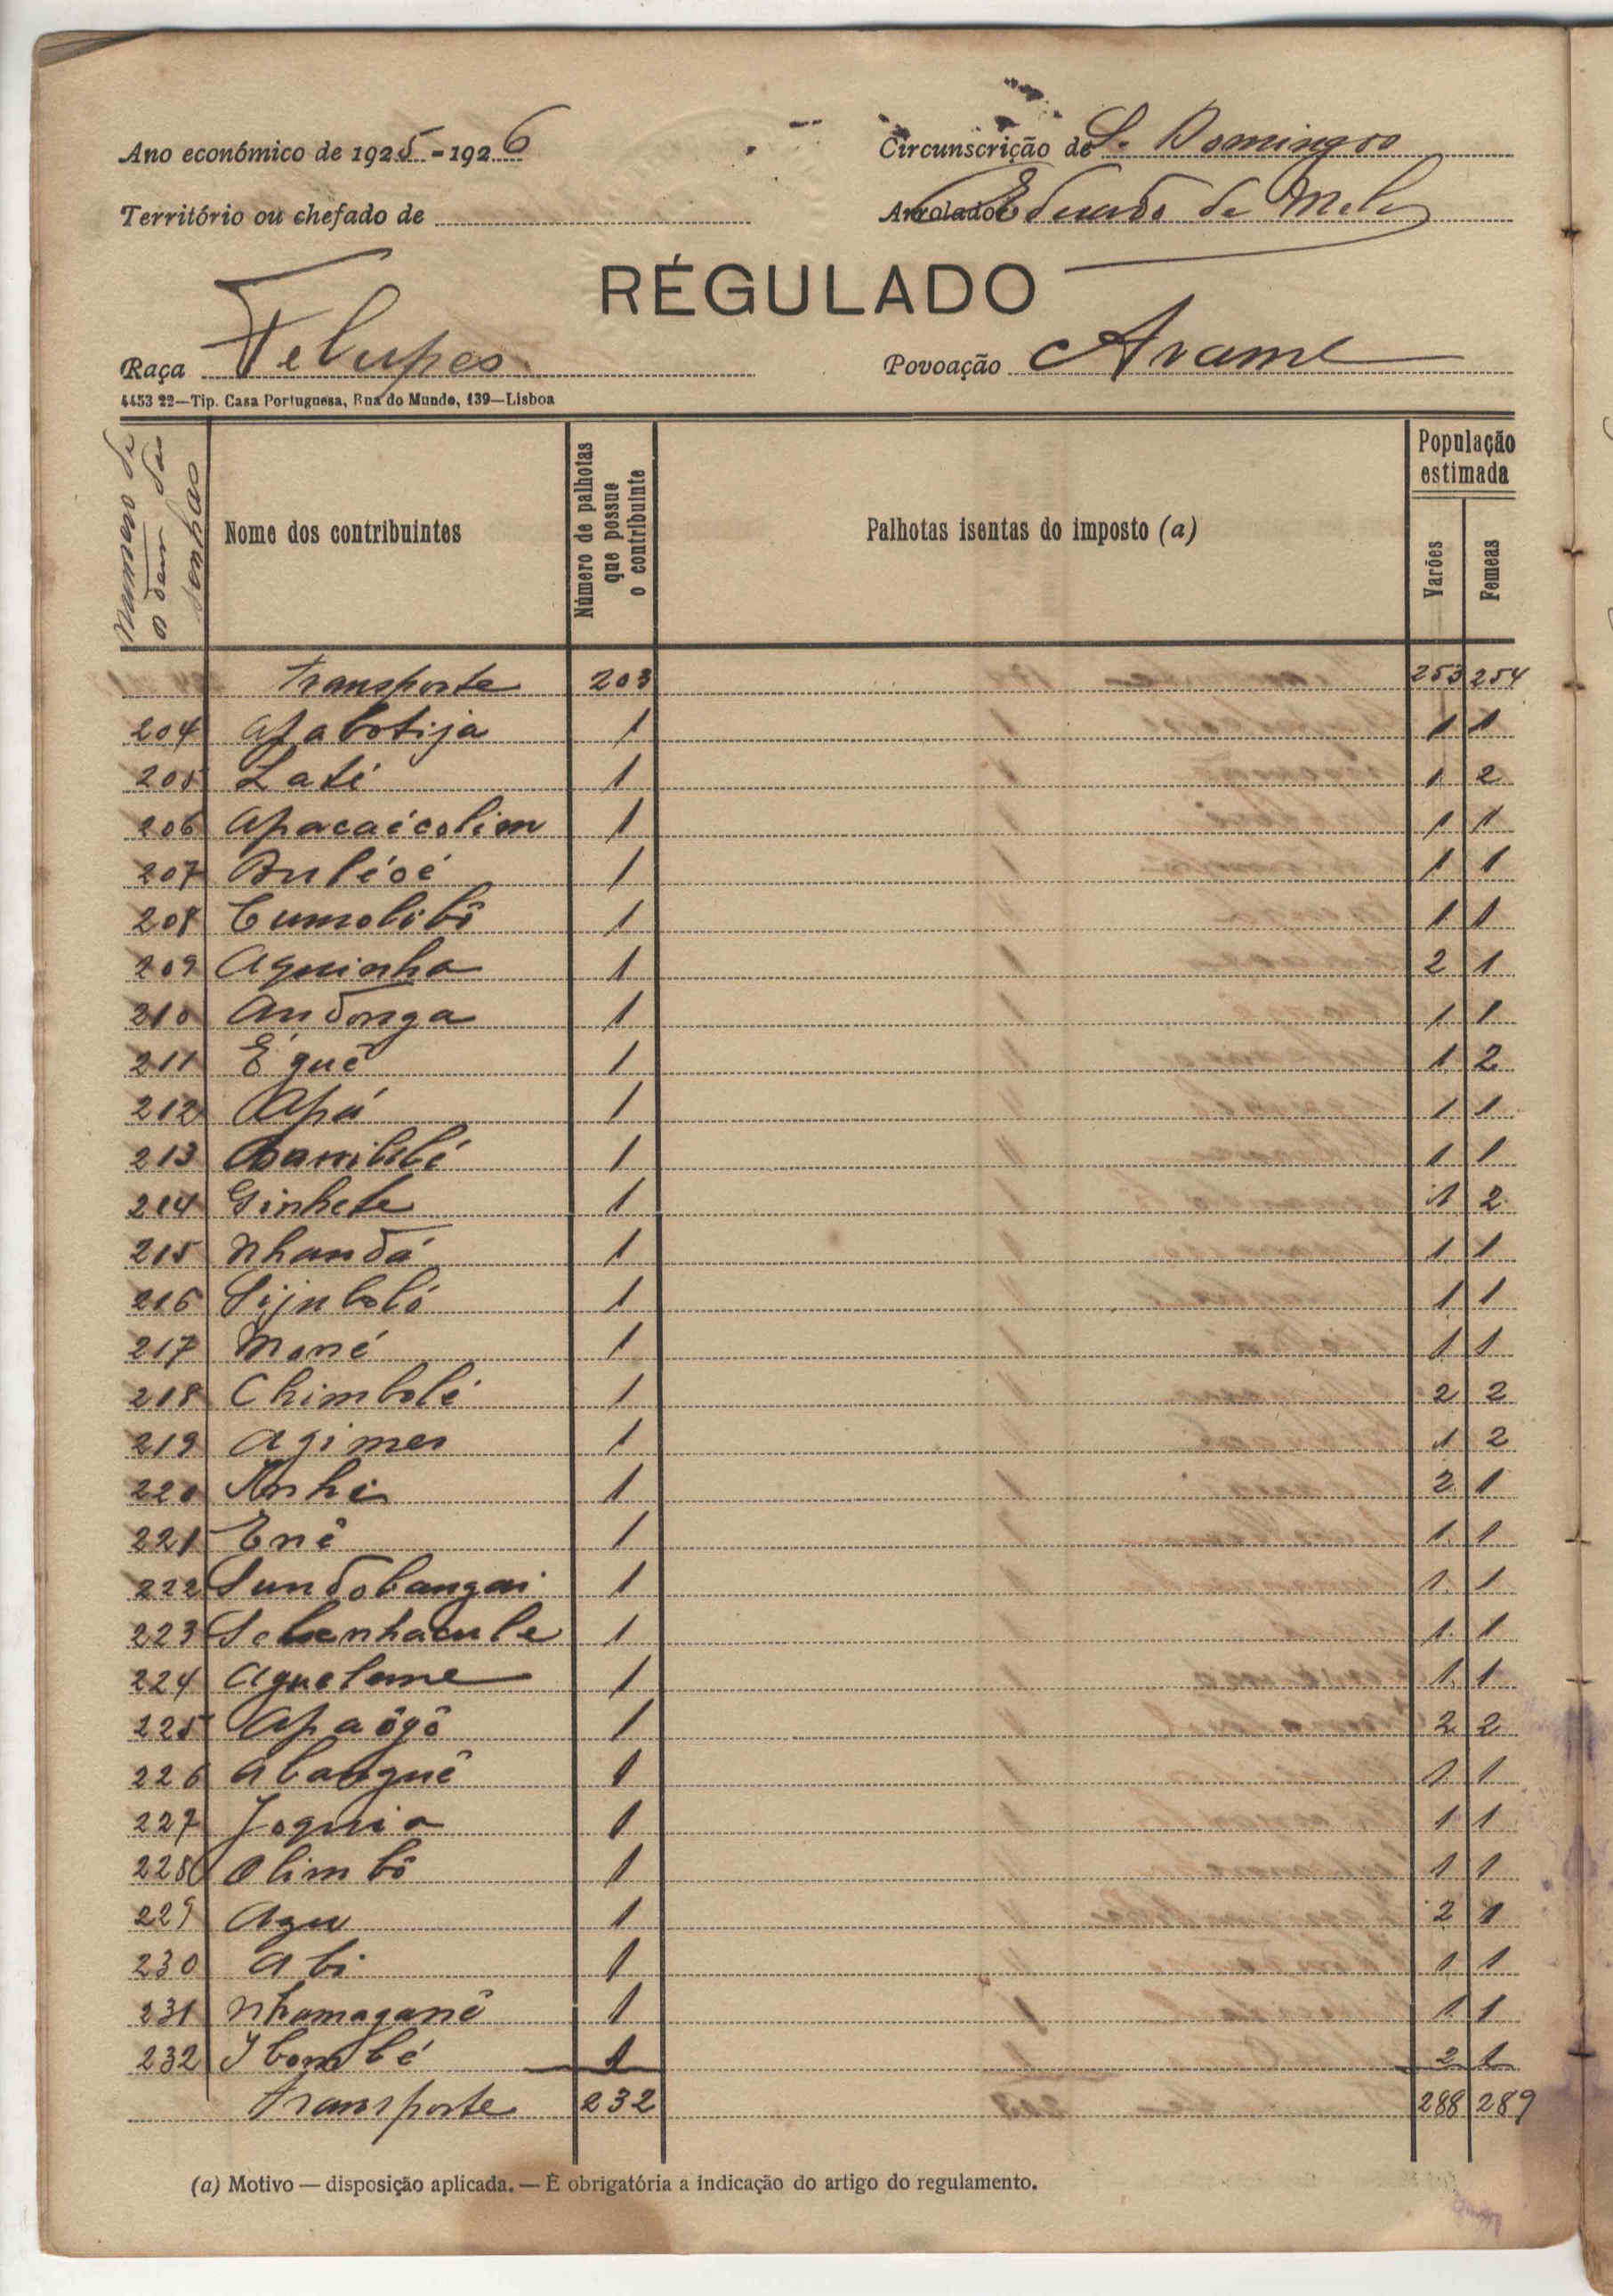 Ano económico de 1925-1926
Circunscrição de S. Domingos
Território ou chefado de
Arrolador Eduardo de Melo
RÉGULADO
Raça Felupes
Povoação Arame
4453 22—Tip. Casa Portuguesa, Rua do Mundo, 139—Lisboa
Numero de
o dem das
senhas
Nome dos contribuintes
Número de palhotas que possue o contribuinte
Palhotas isentas do imposto (a)
População estimada
Varões
Femeas
Transporte 203 253 254
204 Apabotija 1 1 1
205 Laté 1 1 2
206 Apacaécolim 1 1 1
207 Buléoé 1 1 1
208 Cumolobô 1 1 1
209 Aquinha 1 2 1
210 Andonga 1 1 1
211 Équê 1 1 2
212 Apá 1 1 1
213 1 1 1
214 Ginhete 1 1 2
215 Nhandá 1 1 1
216 Sijuboló 1 1 1
217 Moné 1 1 1
218 Chimbolé 1 2 2
219 Agimes 1 1 2
220 1 2 1
221 Enê 1 1 1
222 Sundobangai 1 1 1
223 1 1 1
224 Aguelume 1 1 1
225 Apaôgô 1 2 2
226 Abaoguê 1 1 1
227 Joquia 1 1 1
228 Olimbô 1 1 1
229 Agu 1 2 1
230 Abi 1 1 1
231 Nhomaganê 1 1 1
232 Ibombé 1 2 1
Transporte 232 288 289
(a) Motivo — disposição aplicada. — É obrigatória a indicação do artigo do regulamento.